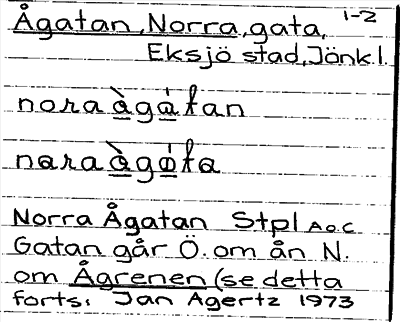 Ågatan, Norra, gata, 1-2
Eksjö stad, Jönk.l.
nora àgátan
nara àgóta
Norra Ågatan Stpl A o C
Gatan går Ö. om ån N.
om Ågrenen (se detta
forts. Jan Agertz 1973